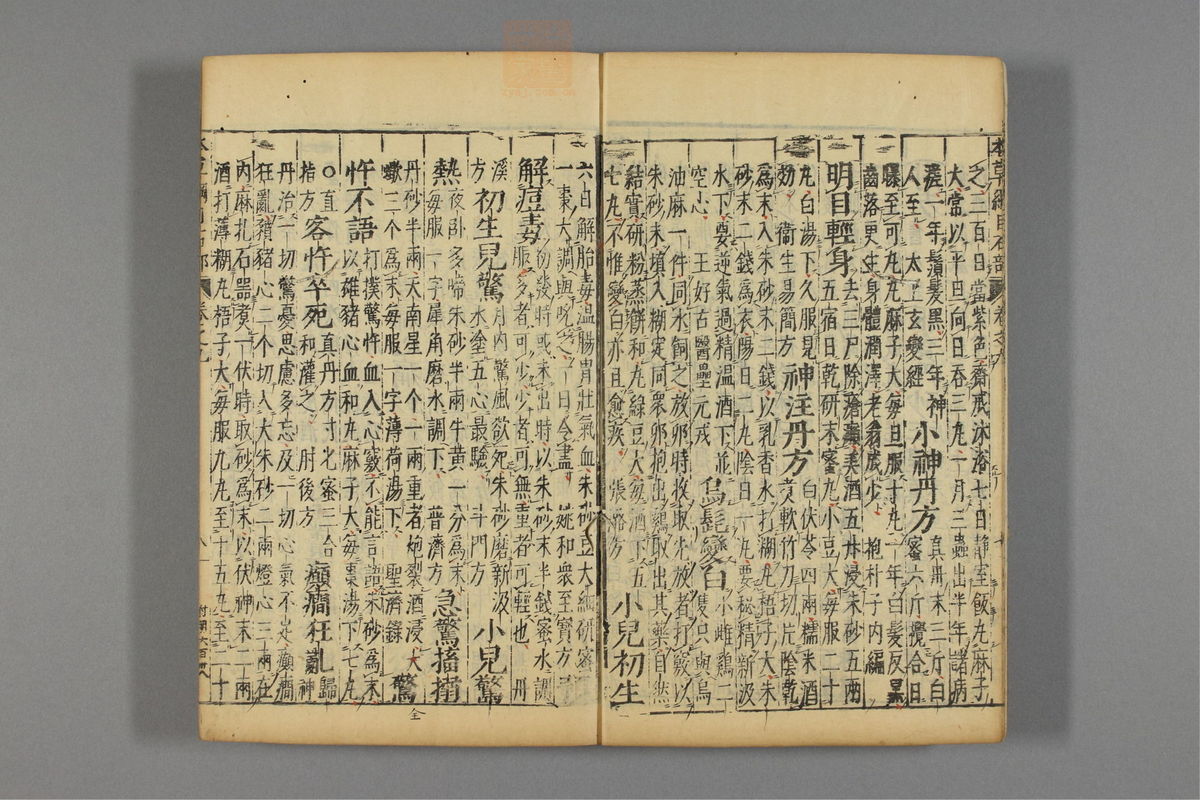 本草綱目石部 卷之九
之三百日當紫色齋戒沐浴七日靜室飯丸麻子
大常以平旦向日吞三丸一月三蟲出半年諸病
瘥一年鬚髮黑三年神
人至 太上玄變經 小神丹方 真丹末三斤白蜜六斤攪合日
曝至可丸丸麻子大每旦服十丸一年白髮反黑
齒落更生身體潤澤老翁成少 抱朴子內編
明目輕身 去三尸除瘡癩美酒五升浸朱砂五兩五宿日乾研末蜜丸小豆大每服二十
丸白湯下久服見
効 衛生易簡方 神注丹方 白伏苓四兩糯米酒煮軟竹刀切片陰乾
為末入朱砂末二錢以乳香水打糊丸梧子大朱
砂末二錢為衣陽日二丸陰日一丸要秘精新汲
水下要逆氣過精溫酒下並
空心 王好古醫壘元戎 烏髭變白 小雌鷄二隻只與烏
油麻一件同水飼之放卵時收取先放者打竅以
朱砂末填入糊定同衆卵抱出鷄取出其藥自然
結實研粉蒸餅和丸綠豆大每酒下五
七丸不惟變白亦且愈疾 張潞方 小兒初生
六日解胎毒溫腸胃壯氣血朱砂豆大細研蜜
一棗大調與吮之一日令盡 姚和衆至寶方
解痘毒 初發時或未出時以朱砂末半錢蜜水調服多者可少少者可無重者可輕也 丹
溪方 初生兒驚 月內驚風欲死朱砂磨新汲水塗五心最驗 斗門方 小兒驚
熱 夜臥多啼朱砂半兩牛黃一分為末每服一字犀角磨水調下 普濟方 急驚搐搦
丹砂半兩大南星一个一兩重者炮裂酒浸大
蠍三个為末每服一字薄荷湯下 聖濟錄 驚
忤不語 打撲驚忤血入心竅不能言語朱砂為末以雄豬心血和丸麻子大每棗湯下七丸
直指方 客忤卒死 真丹方寸匕蜜三合和灌之 肘後方 癲癇狂亂 歸神
丹治一切驚憂思慮多忘及一切心氣不足癲癇
狂亂豶豬心二个切入大朱砂二兩燈心三兩在
內麻扎石器煮一伏時取砂為末以伏神末二兩
酒打薄糊丸梧子大每服九丸至十五丸至二十